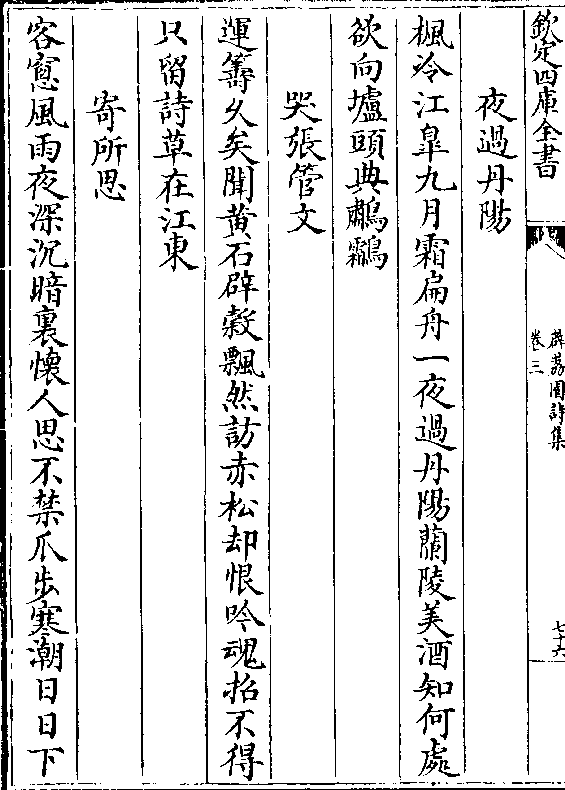 欽定四庫全書
薜荔園詩集
卷三
七十六
夜過丹陽
楓冷江臯九月霜扁舟一夜過丹陽蘭陵美酒知何處
欲向壚頭典鷫鸘
哭張管文
運籌久矣聞黄石辟糓飄然訪赤松却恨吟魂招不得
只留詩草在江東
寄所思
客窓風雨夜深沉暗裏懐人思不禁爪步寒潮日日下